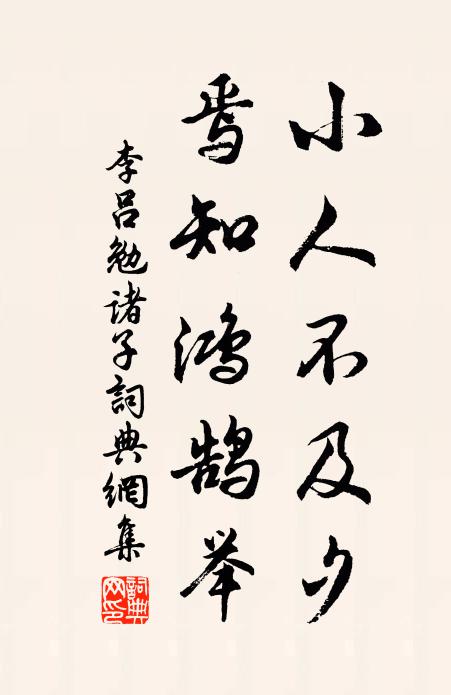 小人不及夕
焉知鸿鹄举
李吕勉诸子詞典網集
詞典網印